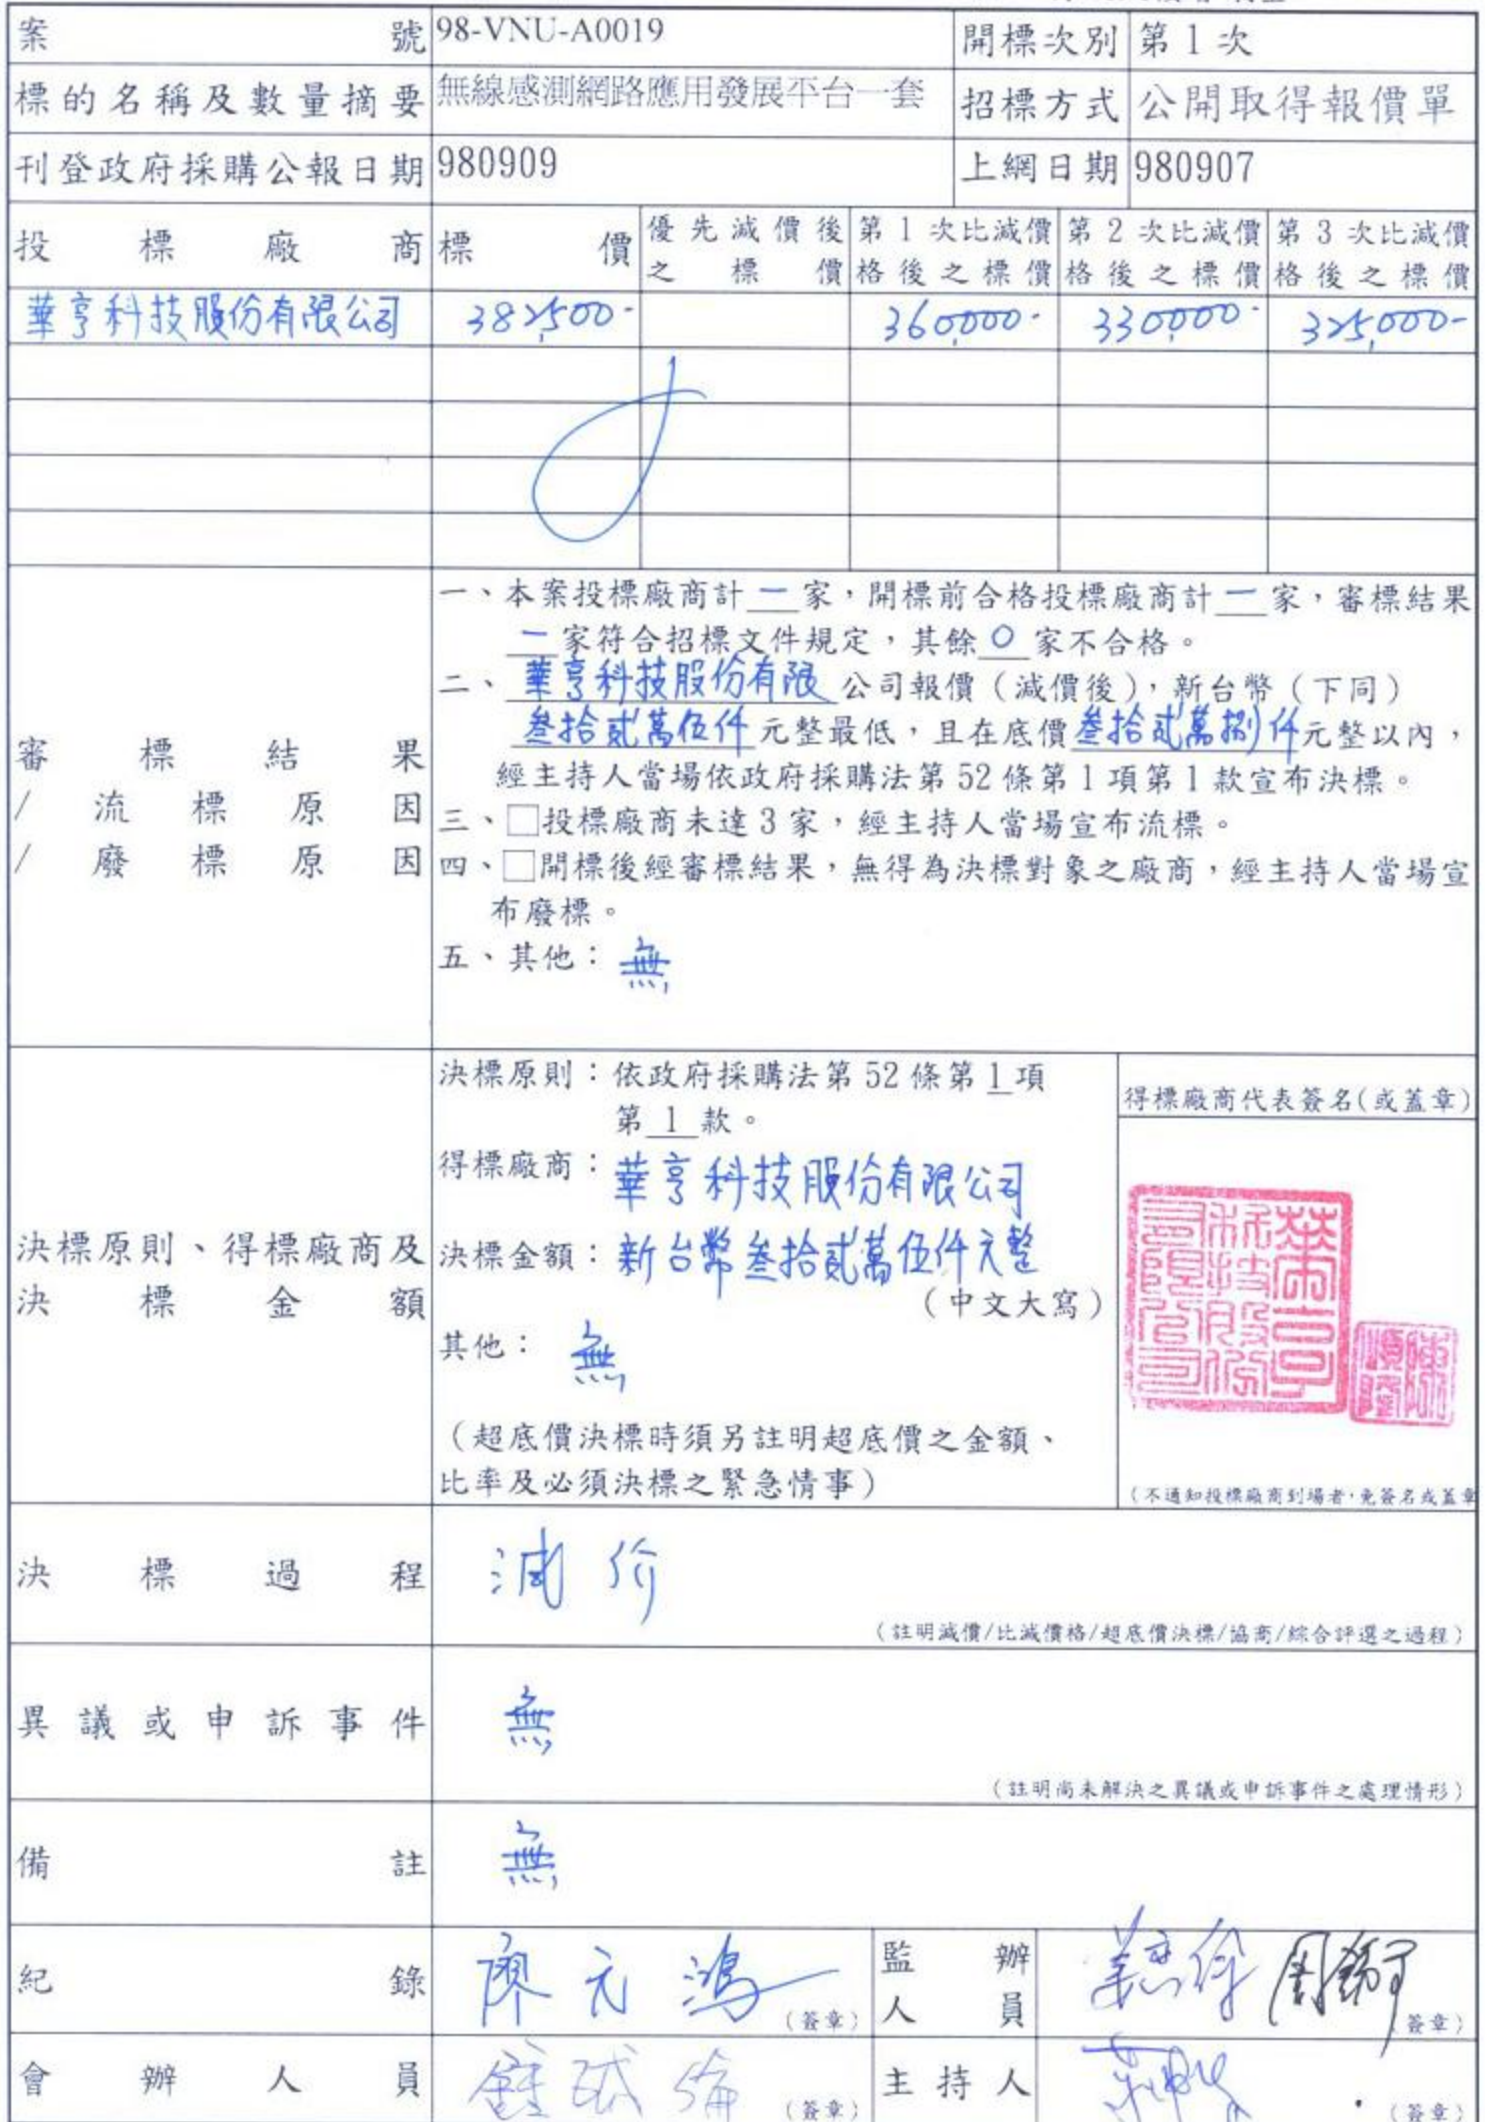 案號 98-VNU-A0019 開標次別 第 1 次
標的名稱及數量摘要 無線感測網路應用發展平台一套 招標方式 公開取得報價單
刊登政府採購公報日期 980909 上網日期 980907
投標廠商 標價 優先減價後之標價 第 1 次比減價格後之標價 第 2 次比減價格後之標價 第 3 次比減價格後之標價
華亨科技股份有限公司 382,500- 360,000- 330,000- 325,000-
一、本案投標廠商計一家，開標前合格投標廠商計一家，審標結果
一家符合招標文件規定，其餘0家不合格。
二、華亨科技股份有限公司報價（減價後），新台幣（下同）
叁拾貳萬伍仟元整最低，且在底價叁拾貳萬捌仟元整以內，
審標結果
經主持人當場依政府採購法第 52 條第 1 項第 1 款宣布決標。
/流標原因
三、□投標廠商未達 3 家，經主持人當場宣布流標。
/廢標原因
四、□開標後經審標結果，無得為決標對象之廠商，經主持人當場宣
布廢標。
五、其他：無
決標原則：依政府採購法第 52 條第 1 項
第 1 款。
得標廠商代表簽名(或蓋章)
得標廠商：華亨科技股份有限公司
決標原則、得標廠商及
決標金額
決標金額：新台幣叁拾貳萬伍仟元整
（中文大寫）
華亨科技股份有限公司
陳順隆
其他：無
（超底價決標時須另註明超底價之金額、
比率及必須決標之緊急情事）
（不通知投標廠商到場者，免簽名或蓋章
決標過程 減价
（註明減價/比減價格/超底價決標/協商/綜合評選之過程）
異議或申訴事件 無
（註明尚未解決之異議或申訴事件之處理情形）
備註 無
紀錄 廖元鴻 （簽章） 監辦人員 簽章）
會辦人員 （簽章） 主持人 （簽章）